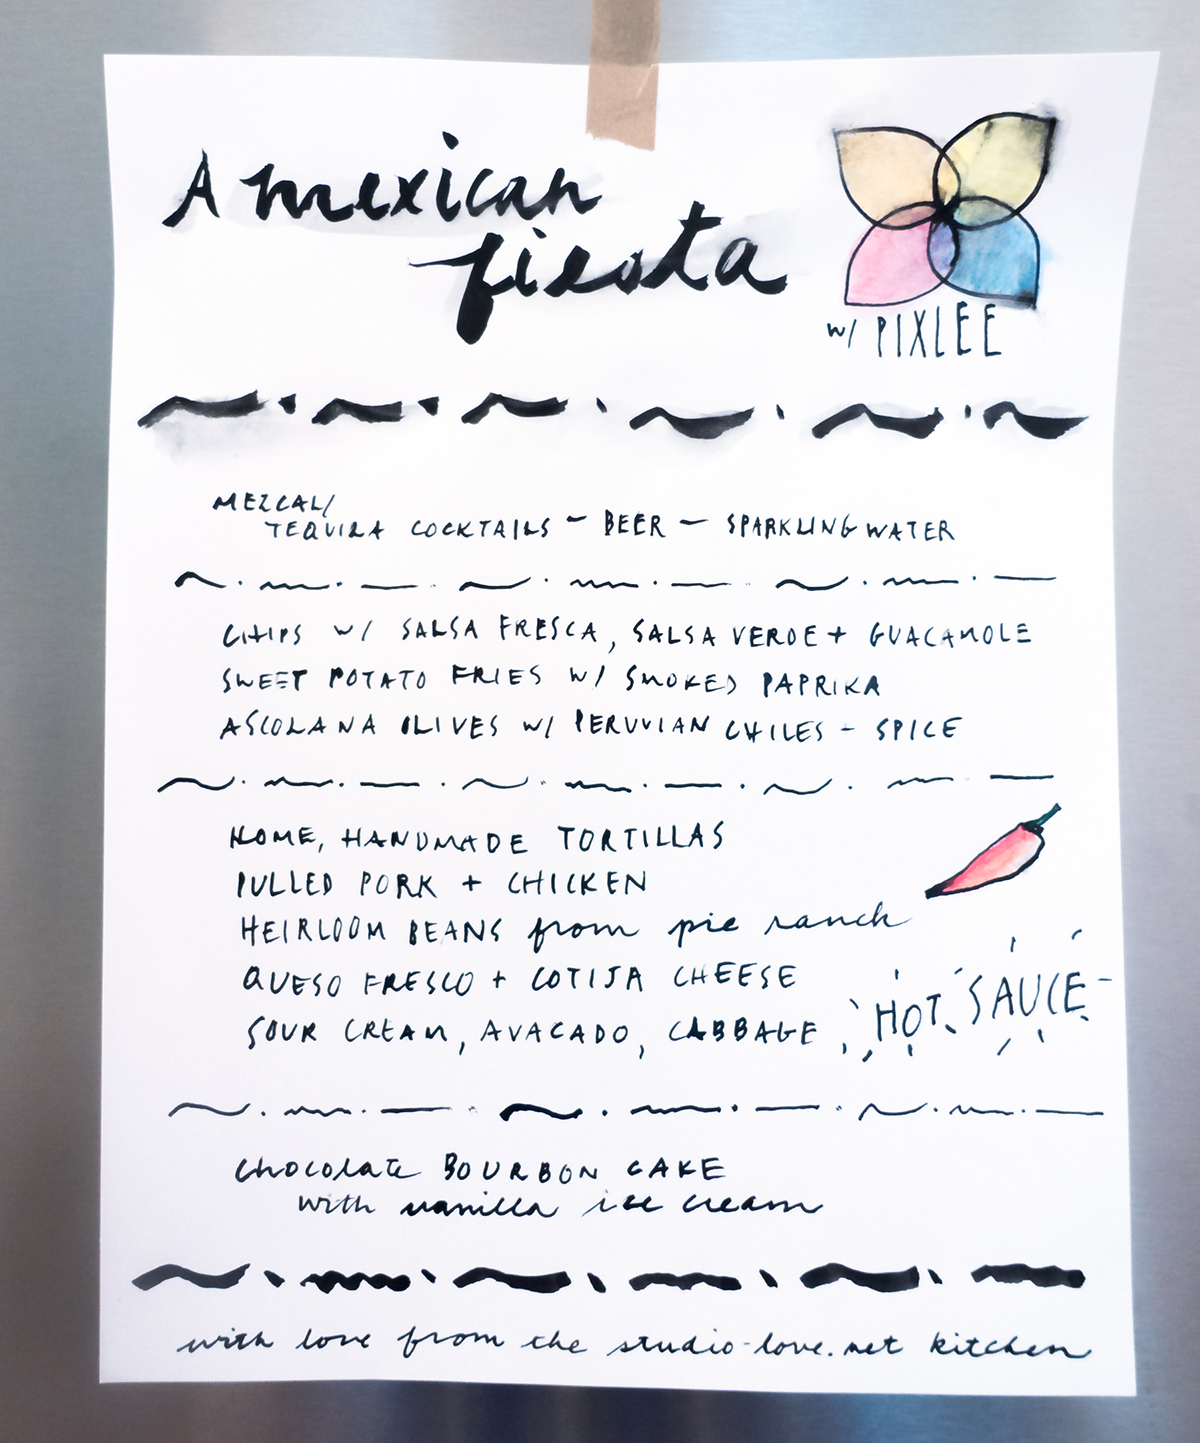 A mexican
fiesta
w/ PIXLEE
MEZCAL/
TEQUILA COCKTAILS – BEER – SPARKLING WATER
CHIPS W/ SALSA FRESCA, SALSA VERDE + GUACAMOLE
SWEET POTATO FRIES W/ SMOKED PAPRIKA
ASCOLANA OLIVES W/ PERUVIAN CHILES - SPICE
HOME, HANDMADE TORTILLAS
PULLED PORK + CHICKEN
HEIRLOOM BEANS from pie ranch
QUESO FRESCO + COTIJA CHEESE
SOUR CREAM, AVACADO, CABBAGE
HOT SAUCE
chocolate BOURBON CAKE
with vanilla ice cream
with love from the studio-love.net kitchen